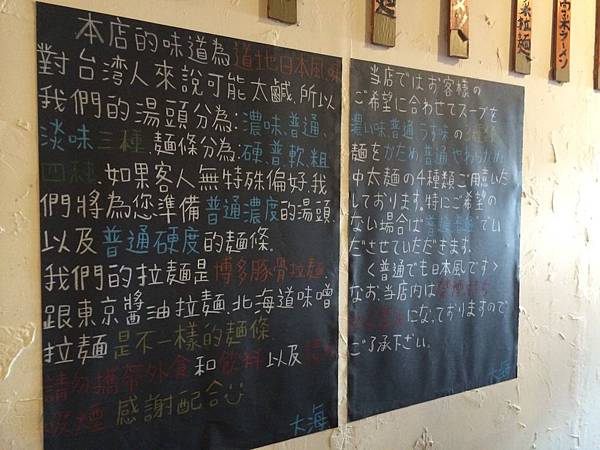 本店的味道為道地日本風味
對台湾人來說可能太鹹.所以
我們的湯頭分為:濃味普通、
淡味三種.麵條分為:硬.普軟.粗
四種.如果客人無特殊偏好.我
們將為您準備普通濃度的湯頭
以及普通硬度的麵條.
我們的拉麵是博多豚骨拉麵.
跟東京醬油拉麵.北海道味噌
拉麵是不一樣的麵條.
請勿攜帶外食和飲料以及
吸煙感謝配合
大海
当店ではお客様の
ご希望に合わせてスープを
濃い味普通うす味の
麺をかため普通やわらかめ
中太麺の4種類ご用意いた
しております.特にご希望の
ない場合は でい
ださせていただきます.
<普通でも日本風です>
なお、当店内は
になっておりますので
ご了承下さい.
大海
ラーメン
拉麵